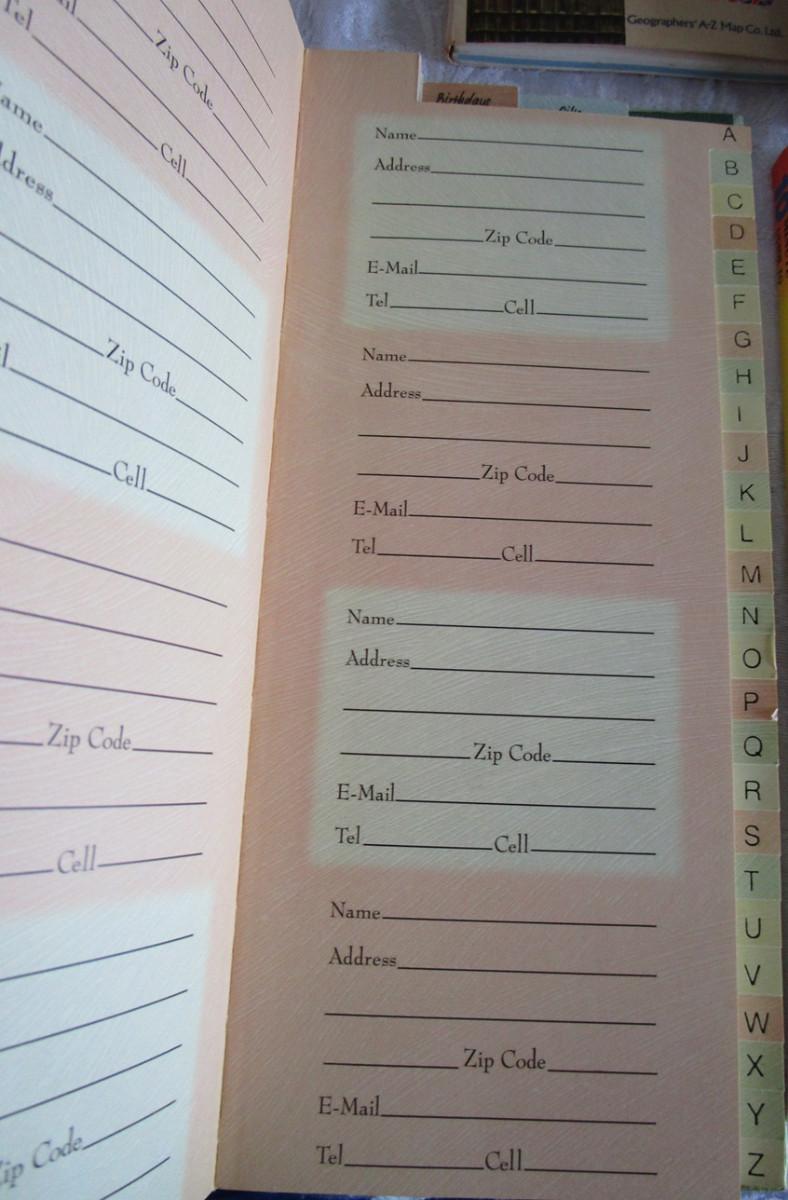 Geographers' A-Z Map Co. Ltd.
Birthdays
Zip Code
Tel
Cell
Name
Address
Zip Code
Cell
Zip Code
Cell
Zip Code
Name
Address
Zip Code
E-Mail
Tel Cell
Name
Address
Zip Code
E-Mail
Tel Cell
Name
Address
Zip Code
E-Mail
Tel Cell
Name
Address
Zip Code
E-Mail
Tel Cell
A
B
C
D
E
F
G
H
I
J
K
L
M
N
O
P
Q
R
S
T
U
V
W
X
Y
Z